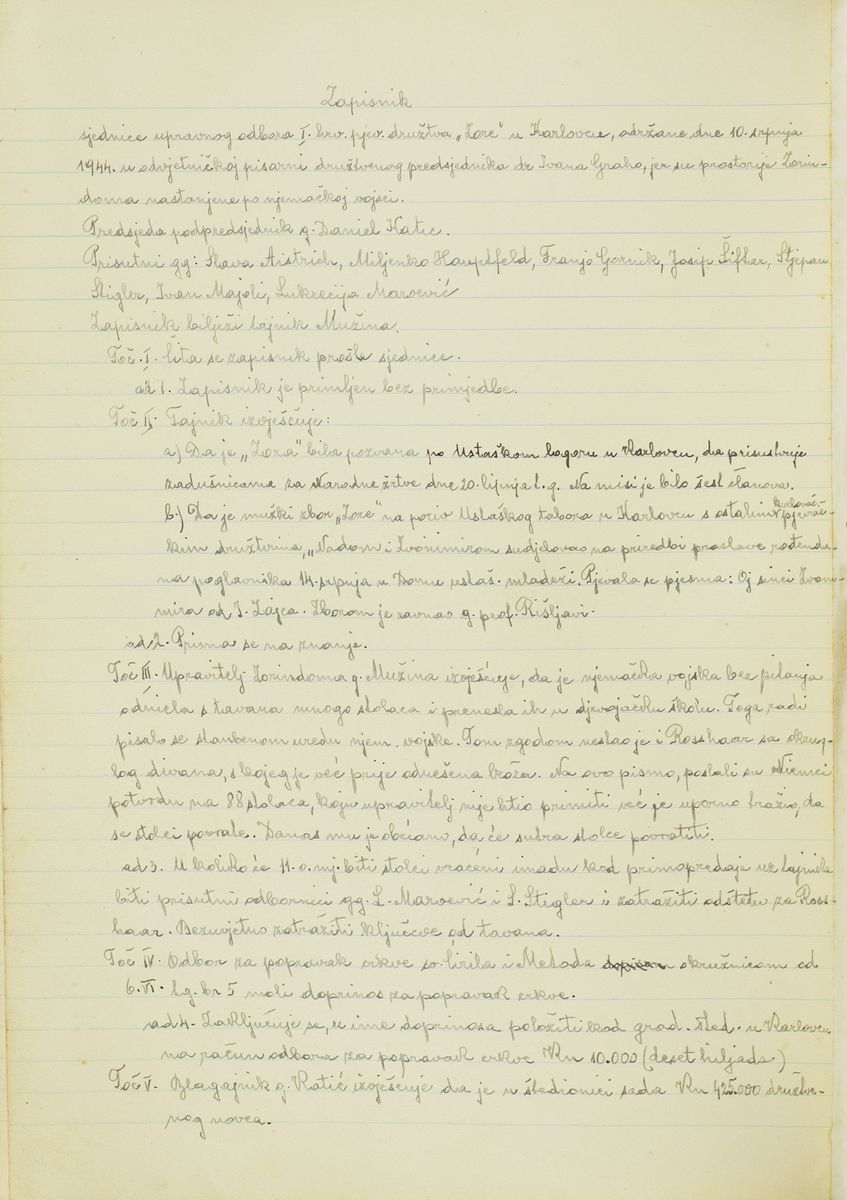 Zapisnik
sjednice upravnog odbora I. hrv. pjev. družtva „Zore" u Karlovcu, održane dne 10. srpnja
1944. u odvjetničkoj pisarni družtvenog predsjednika dr Ivana Graho, jer su prostorije Zorin-
doma nastanjene po njemačkoj vojsci.
Predsjeda podpredsjednik g. Daniel Katić.
Prisutni gg: Slava Aistrich, Miljenko Hauptfeld, Franjo Gornik, Josip Šifkar, Stjepan
Stigler, Ivan Majoli, Lukrecija Maroević
Zapisnik bilježi tajnik Mužina.
Toč. I. Čita se zapisnik prošle sjednice.
ad 1. Zapisnik je primljen bez primjedbe.
Toč II. Tajnik izvješćuje:
a) Da je „Zora" bila pozvana po Ustaškom logoru u Karlovcu, da prisustvuje
zadušnicama za Narodne žrtve dne 20. lipnja t. g. Na misi je bilo šest članova.
b.) Da je mužki zbor „Zore" na poziv Ustaškog tabora u Karlovcu s ostalim karlovač. pjevač-
kim družtvima, „Nadom i Zvonimirom sudjelovao na priredbi proslave rođenda-
na poglavnika 14. srpnja u Domu ustaš. mladeži. Pjevala se pjesma: Oj sinci Zvoni-
mira od I. Zajca. Zborom je ravnao g. prof. Rišljavi.
ad 2. Prisma se na znanje.
Toč III. Upravitelj Zorindoma g. Mužina izvješćuje, da je njemačka vojska bez pitanja
odniela s tavana mnogo stolaca i prenesla ih u djevojačku školu. Toga radi
pisalo se stanbenom uredu njem. vojske. Tom zgodom nestao je i Rosshaar sa okrug-
log divana, s kojeg je već prije odnešena koža. Na ovo pismo, poslali su Niemci
potvrdu na 88 stolaca, koju upravitelj nije htio primiti već je uporno tražio, da
se stolci povrate. Danas mu je obećano, da će sutra stolce povratiti.
ad 3. U koliko će 11. o. mj. biti stolci vraćeni imadu kod primopredaje uz tajnika
biti prisutni odbornici gg. L. Maroević i S. Stiegler i zatražiti odštetu za Ross-
haar. Bezuvjetno zatražiti ključeve od tavana.
Toč IV. Odbor za popravak crkve sv. Ćirila i Metoda okružnicom od
6. VI. t.g. br 5 moli doprinos za popravak crkve.
ad 4. Zaključuje se, u ime doprinosa položiti kod grad. šted. u Karlovcu
na račun odbora za popravak crkve Kn 10.000 (deset hiljada)
Toč V. Blagajnik g. Katić izvješćuje da je u štedionici sada Kn 425.000 družtve-
nog novca.